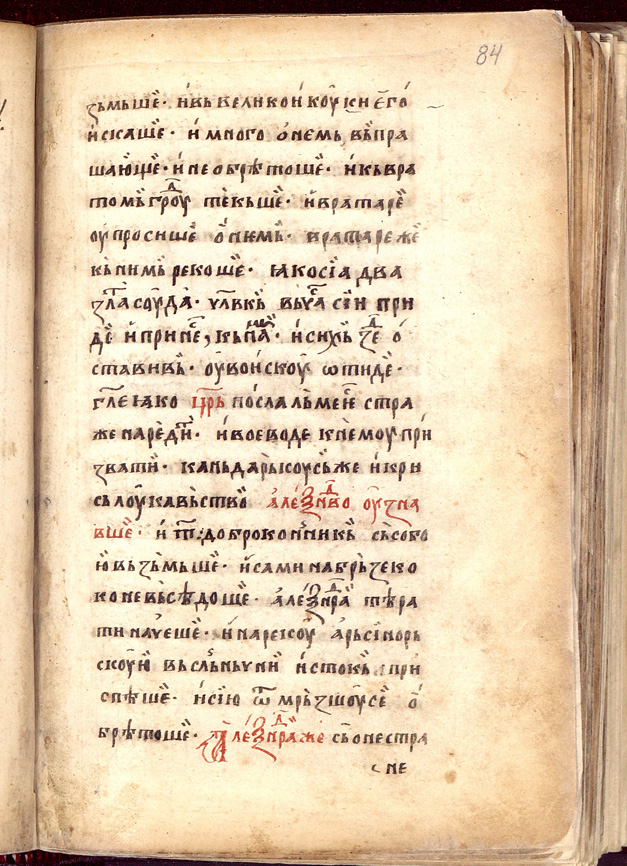 84
зьмьше · и вь великои коуки его
искаше · и много о немь, вьпра
шающе · и не обрѣтоше · и кь вра
томь гроу текьше · и вратаре
оупросише о немь · вратаре же
кь нимь рекоше · ꙗко сіа два
злта соуда · члвкь вь ча сеи при
де и прине, кь на · и сихь зе о
ставивь · оу воискоу ѿтиде ·
гле ꙗко црь посла льмене стра
же нареди · и воеводе к немоу при
звати · каньдарькоусь же и кри
сь лоукавьство алеѯнво оузна
вше · и доброконникь сь собо
ю вьзьмьше · и сами на брьзе ко
коне вьсѣдоше · алеѯнра тѣра
ти начеше · и на рекоу арьсінорь
скоую вь слньчни истокь при
спѣше · и сію ѿмрьзшоусе о
брѣтоше · Алеѯнра же сь оне стра
не